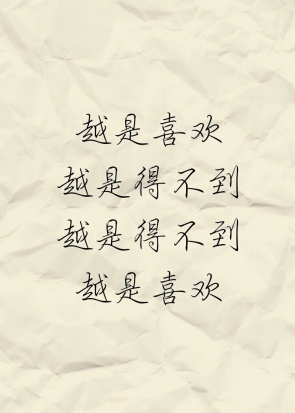 越是喜欢
越是得不到
越是得不到
越是喜欢